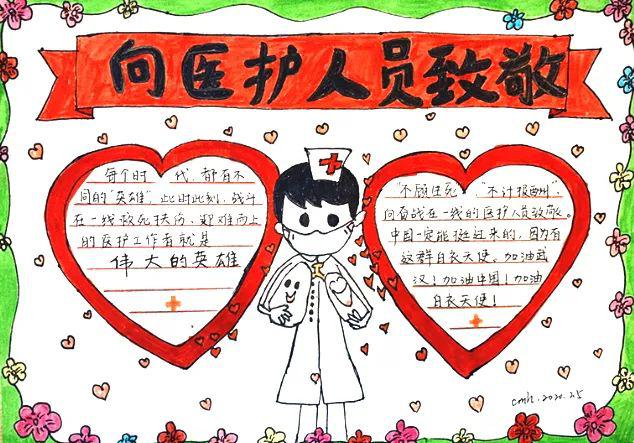 向医护人员致敬
每个时代都有不
同的"英雄",此时此刻,战斗
在一线救死扶伤,迎难而上
的医护工作者就是
伟大的英雄
"不顾生死","不计报酬",
向奋战在一线的医护人员致敬。
中国一定能挺过来的,因为有
这群白衣天使。加油武
汉!加油中国!加油
白衣天使!
cmh.2020.2.5